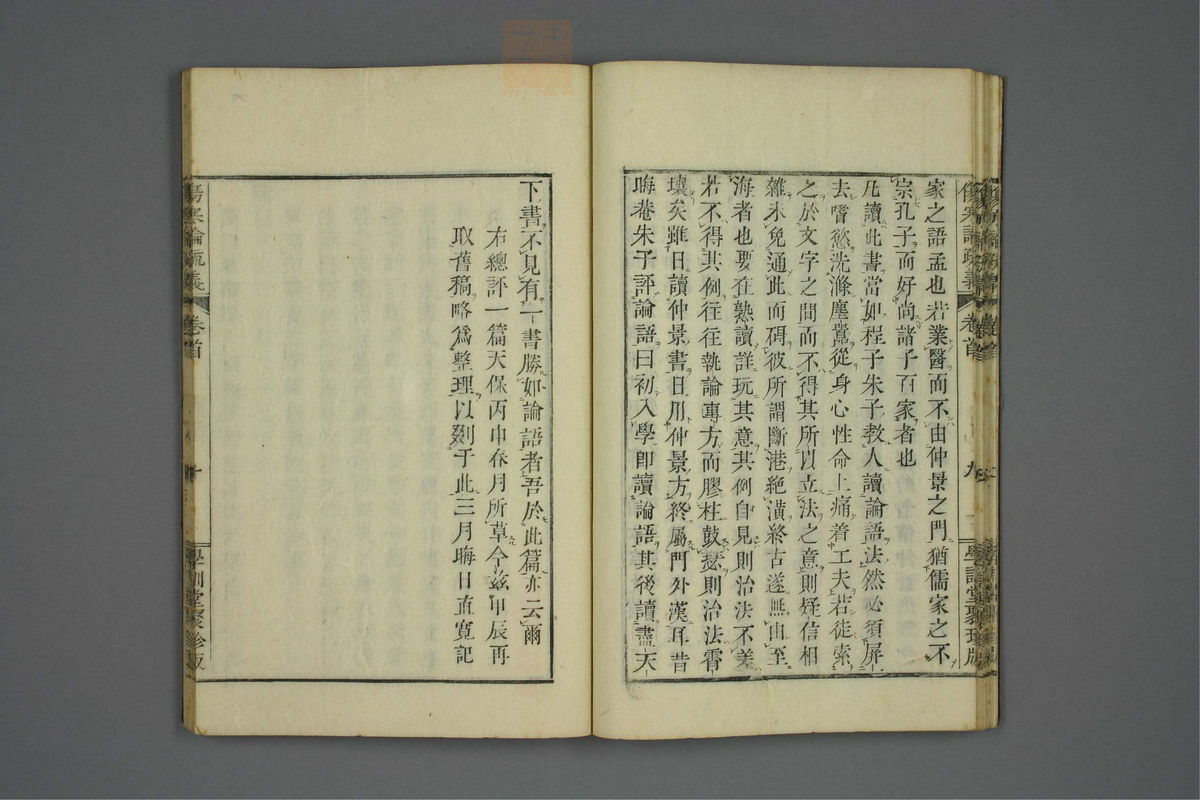 家之語孟也若業醫而不由仲景之門猶儒家之不
宗孔子而好尚諸子百家者也
凡讀此書當如程子朱子教人讀論語法然必須屏
去嗜慾洗滌塵囂從身心性命上痛着工夫若徒索
之於文字之間而不得其所以立法之意則疑信相
雜未免通此而碍彼所謂斷港絶潢終古遂無由至
海者也要在熟讀詳玩其意其例自見則治法不差
若不得其例往往執論專方而膠柱鼓瑟則治法霄
壤矣雖日讀仲景書日用仲景方終屬門外漢耳昔
晦菴朱子評論語曰初入學卽讀論語其後讀盡天
下書不見有一書勝如論語者吾於此篇亦云爾
右總評一篇天保丙申春月所草今茲甲辰再
取舊稿略爲整理以剟于此三月晦日直寬記
傷寒論疏義
卷首
九
學訓堂聚珍版
傷寒論疏義
卷首
十
學訓堂聚珍版